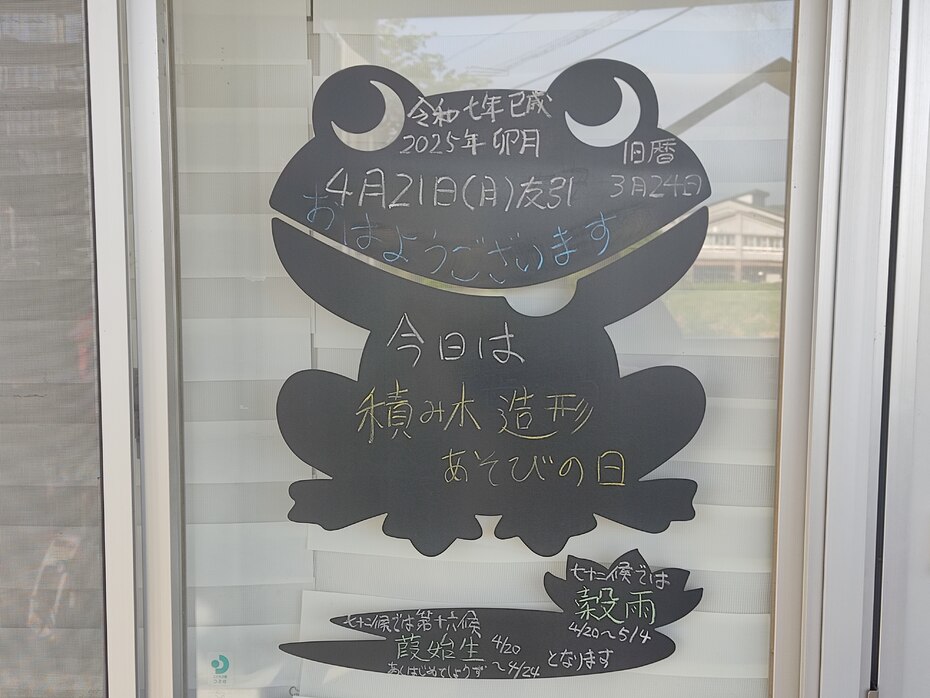 令和七年 巳歳
2025年 卯月
旧暦
4月21日(月)友引
3月24日
おはようございます
今日は
積み木 造形
あそびの日
七十二候では
穀雨
4/20〜5/4
七十二候では第十六候
葭始生 4/20
〜4/24
となります